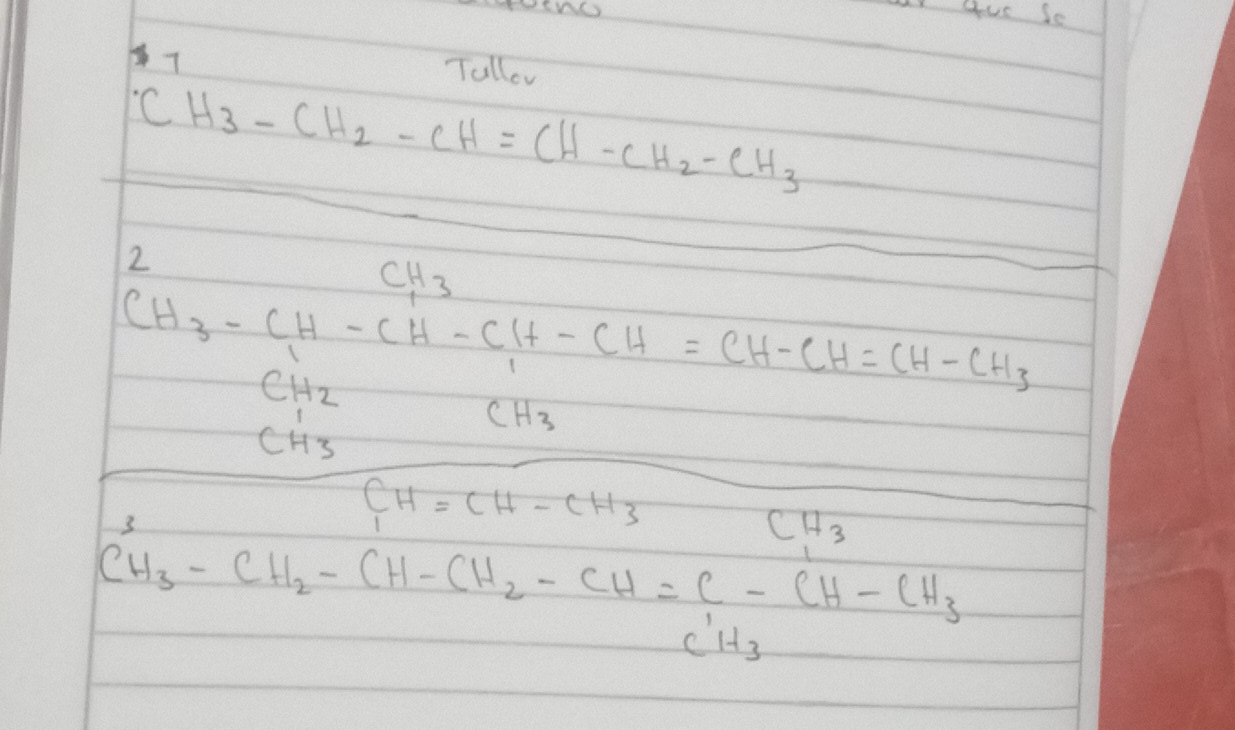 que se
1 Taller
CH3 - CH2 - CH = CH - CH2 - CH3
2
CH3
CH3 - CH - CH - CH - CH = CH - CH = CH - CH3
CH2 CH3
CH3
CH = CH - CH3
3 CH3
CH3 - CH2 - CH - CH2 - CH = C - CH - CH3
CH3